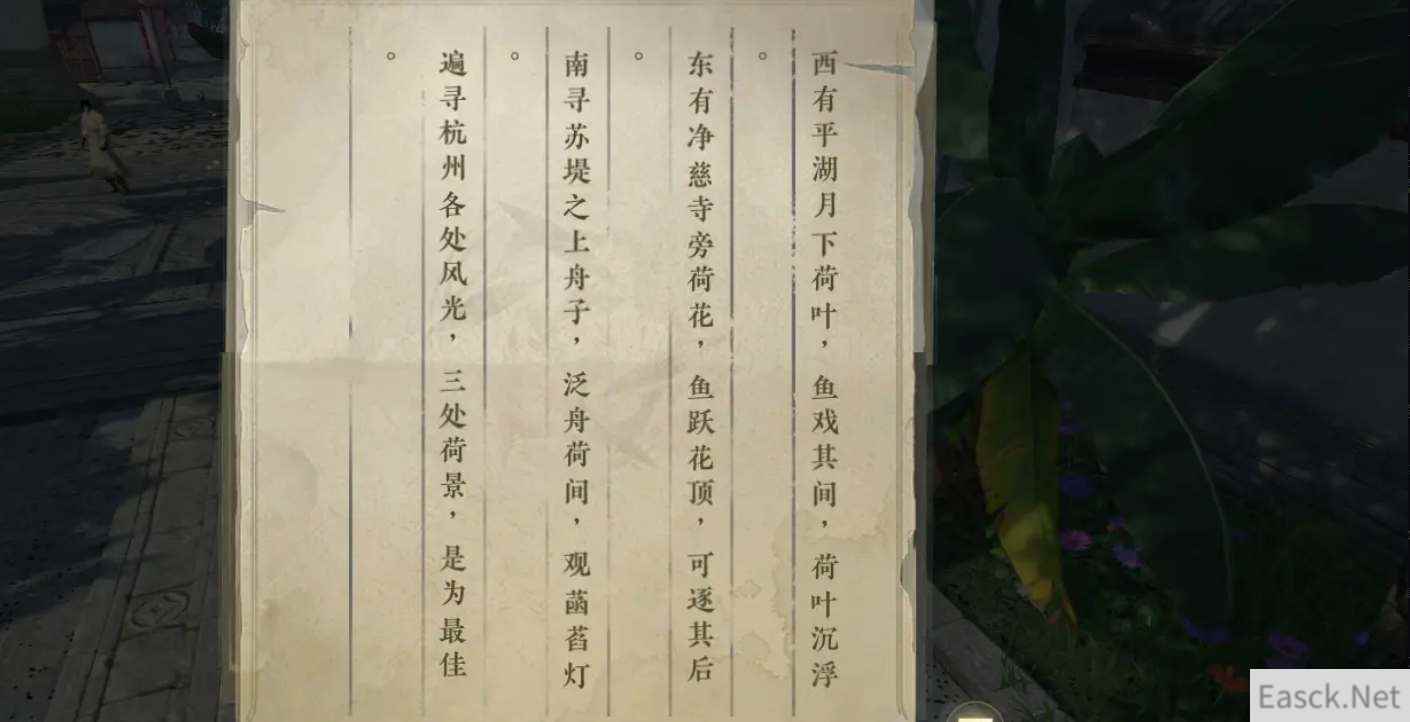 西有平湖月下荷叶，鱼戏其间，荷叶沉浮
。
东有净慈寺旁荷花，鱼跃花顶，可逐其后
。
南寻苏堤之上舟子，泛舟荷间，观菡萏灯
。
遍寻杭州各处风光，三处荷景，是为最佳
。
Easck.Net